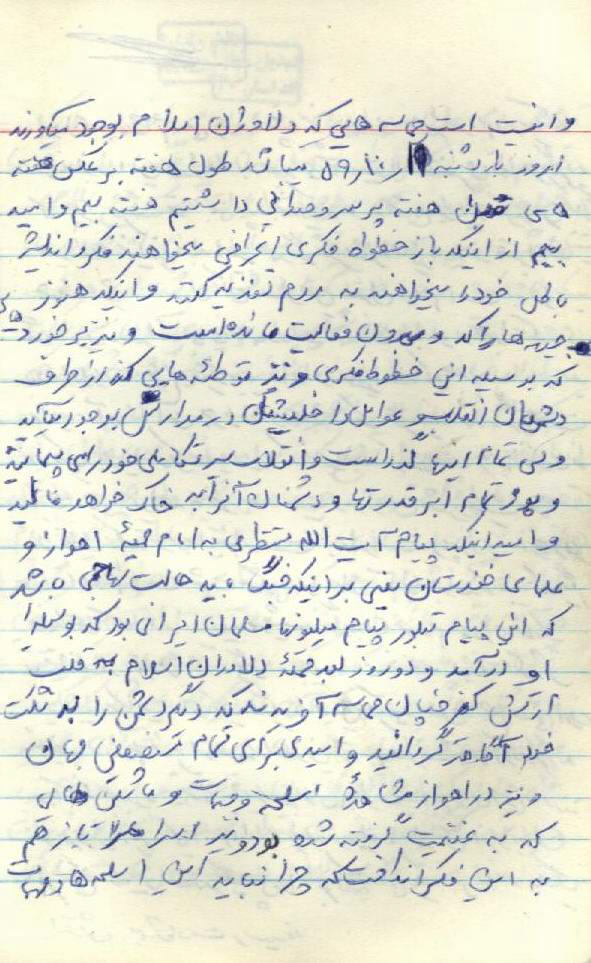 واقعیت است حماسه هایی که دلاوران اسلام بوجود میآورند
امروز یازدشنبه ۱۱ر۱۰ر۵۹ میباشد طول هفته برعکس هفته
های قبل هفته پر سروصدایی داشتیم هفته بیم و امید
بیم از اینکه باز خطوط فکری انحرافی میخواهند فکر و اندیشه
باطل خود را میخواهند به مردم تغذیه کنند و اینکه هنوز
جبهه ها راکد و بدون فعالیت مانده است و نیز برخورد
که بوسیله این خطوط فکری و نیز توطئه هایی که از طرف
دشمنان انقلاب و عوامل داخلیشان در مدارس بوجود میآید
ولی تمام اینها گذراست و انقلاب به تکاملی خود راهی پیمائید
و پوزه تمام ابرقدرتها و دشمنان آنرا به خاک خواهد مالید
و امید اینکه پیام آیت الله منتظری به امام جمعهٔ اهواز و
علمای خوزستان یعنی بر اینکه جنگ باید حالت تهاجمی باشد
که این پیام تبلور پیام میلیونها مسلمان ایرانی بود که بوسیله
او درآمد و دو روز بعد حملهٔ دلاوران اسلام به قلب
ارتش کفر چنان حماسه آفریدند که دیگر دشمن را به شکست
خود آگاه تر گردانید و امیدی برای تمام مستضعفین جهان
و نیز در اهواز مشاهدهٔ اسلحه و مهمات و ماشین های
که به غنیمت گرفته شده بود و نیز اسرا باز هم
به این فکر انداخت که چرا نباید این اسلحه ها و مهمات